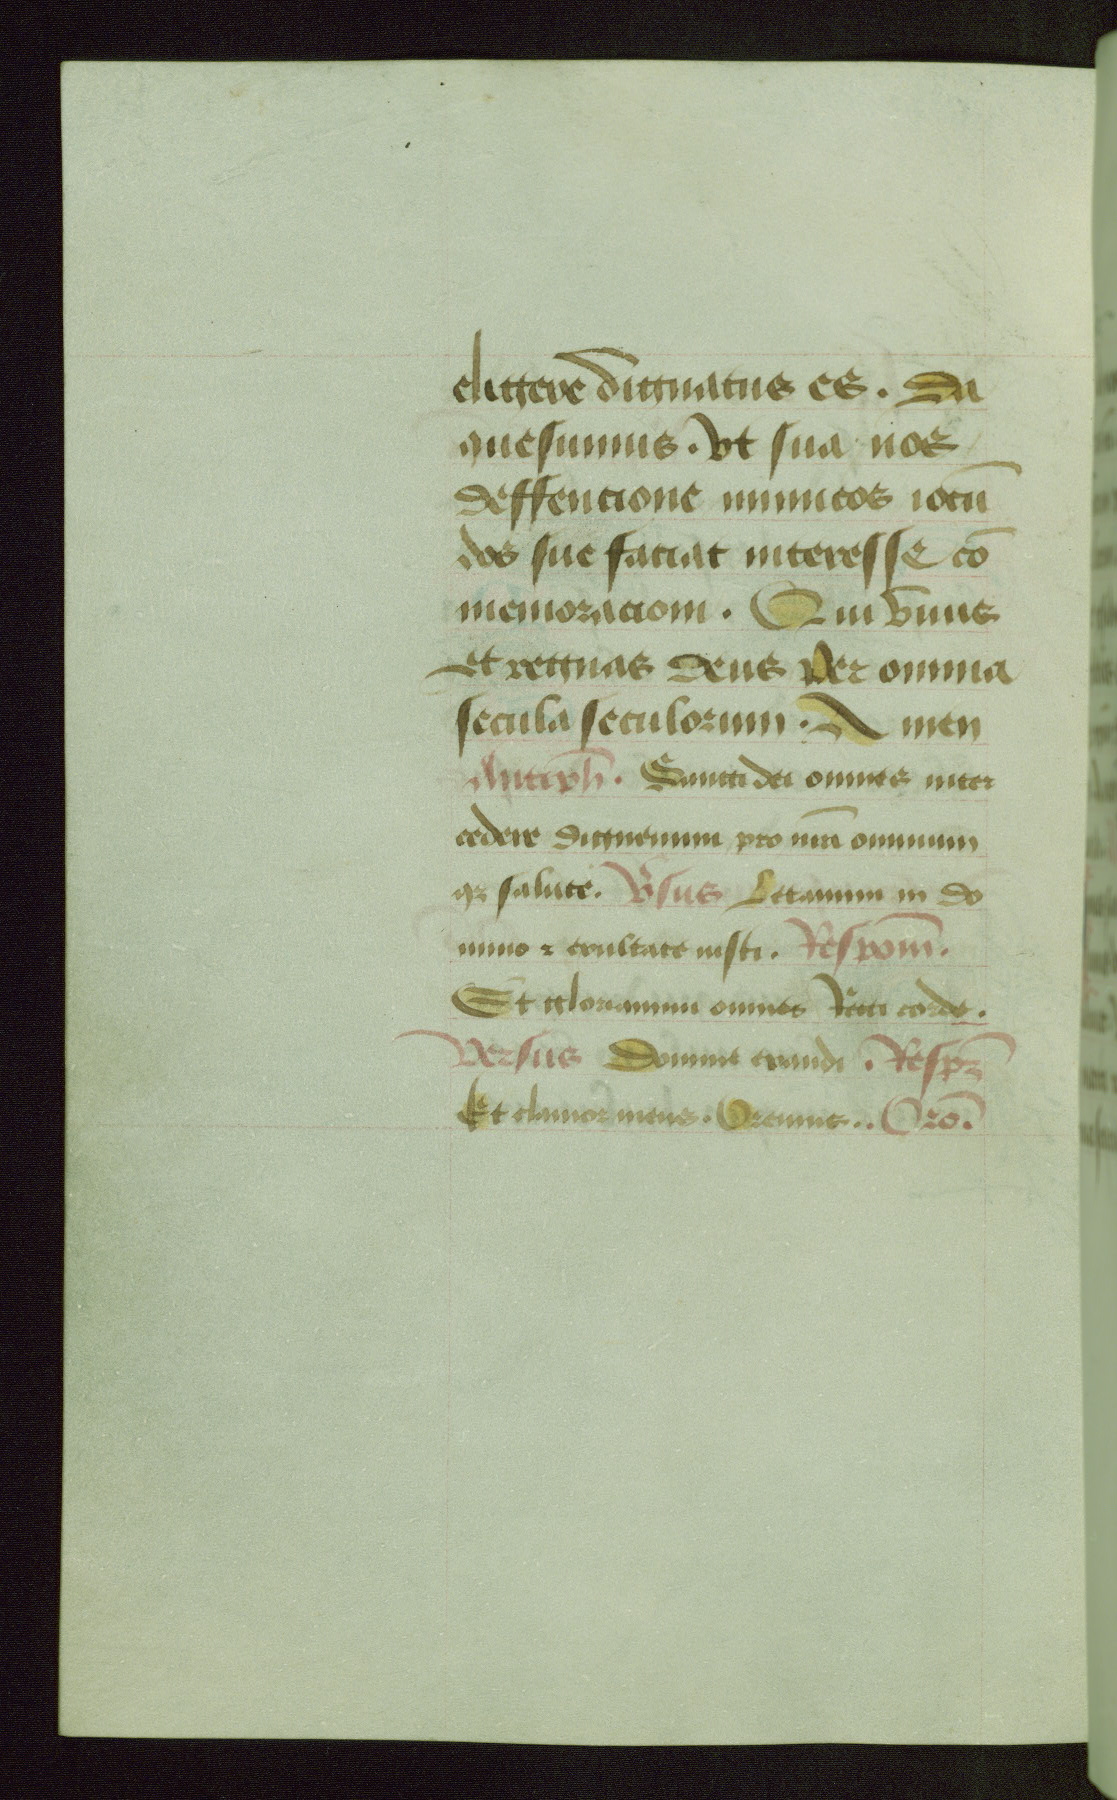 eligere dignatus es. Da
quesumus. Vt sua nos
deffencione munitos iocū
dos sue faciat interesse cō
memoracioni. Qui viuis
et regnas deus per omnia
secula seculorum. Amen
Antiph. Sancti dei omnes inter
cedere dignemini pro nrā omnium
qz salute. Vsus Letamini in do
mino ⁊ exultate iusti. Respom̄.
Et gloriamini omnes Recti corde.
Versus Domine exaudi. Respz
Et clamor meus. Oremus.. Orō.